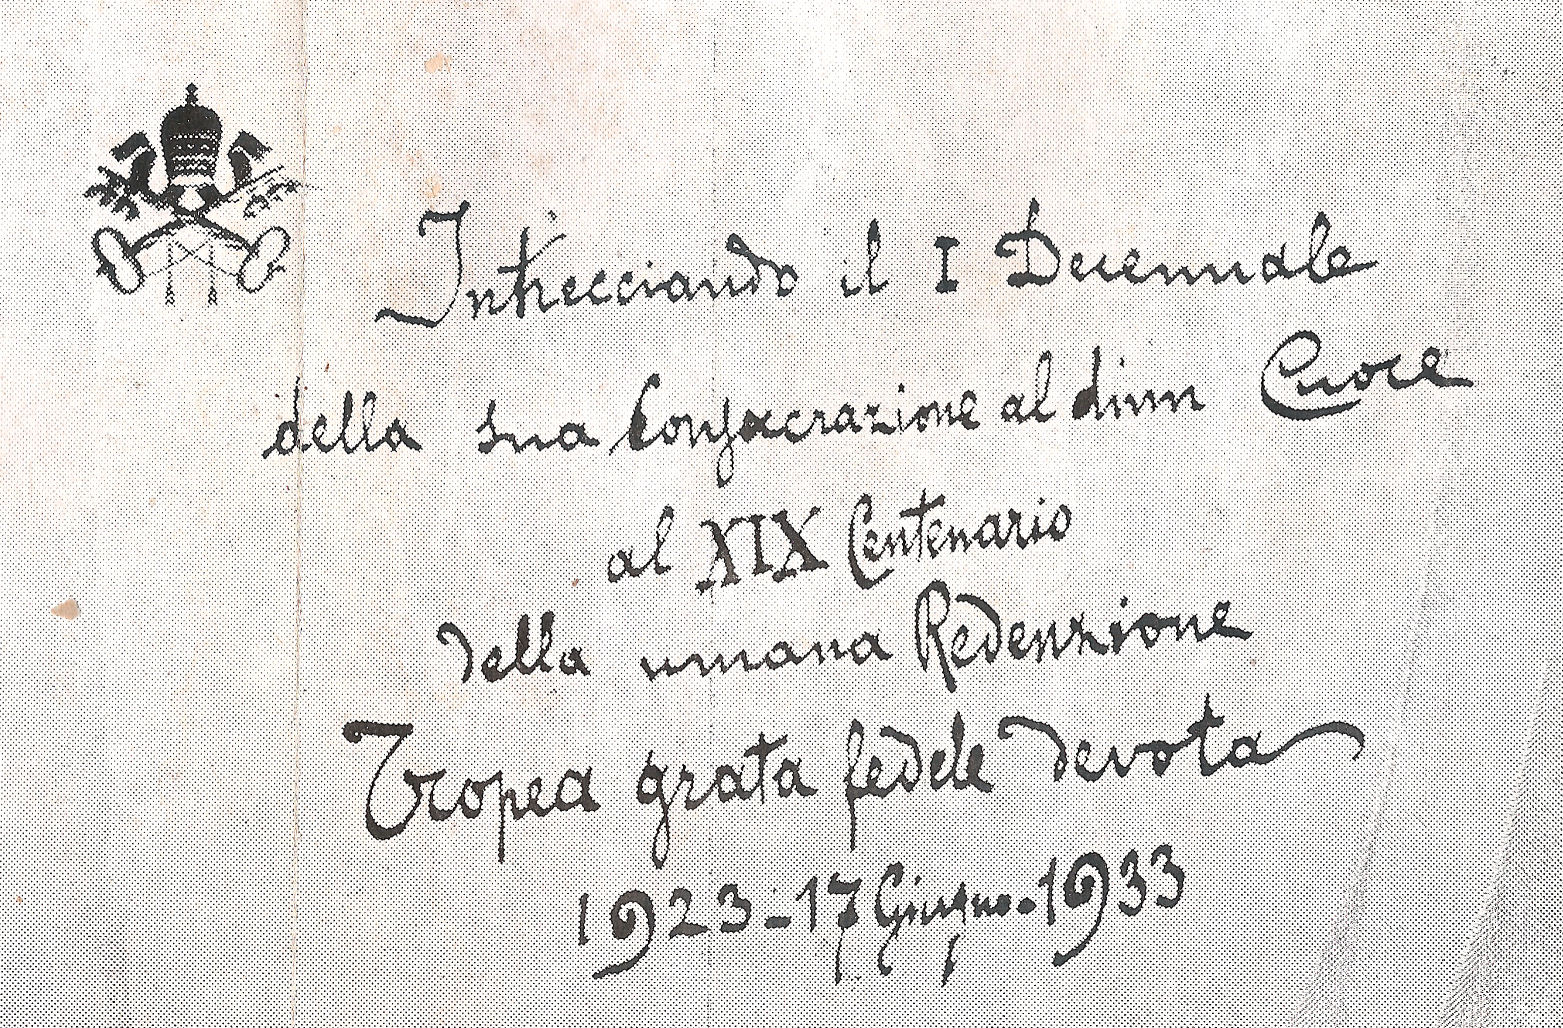 Intrecciando il I Decennale
della sua Consacrazione al divin Cuore
al XIX Centenario
della umana Redenzione
Tropea grata fedele devota
1923-17 Giugno-1933